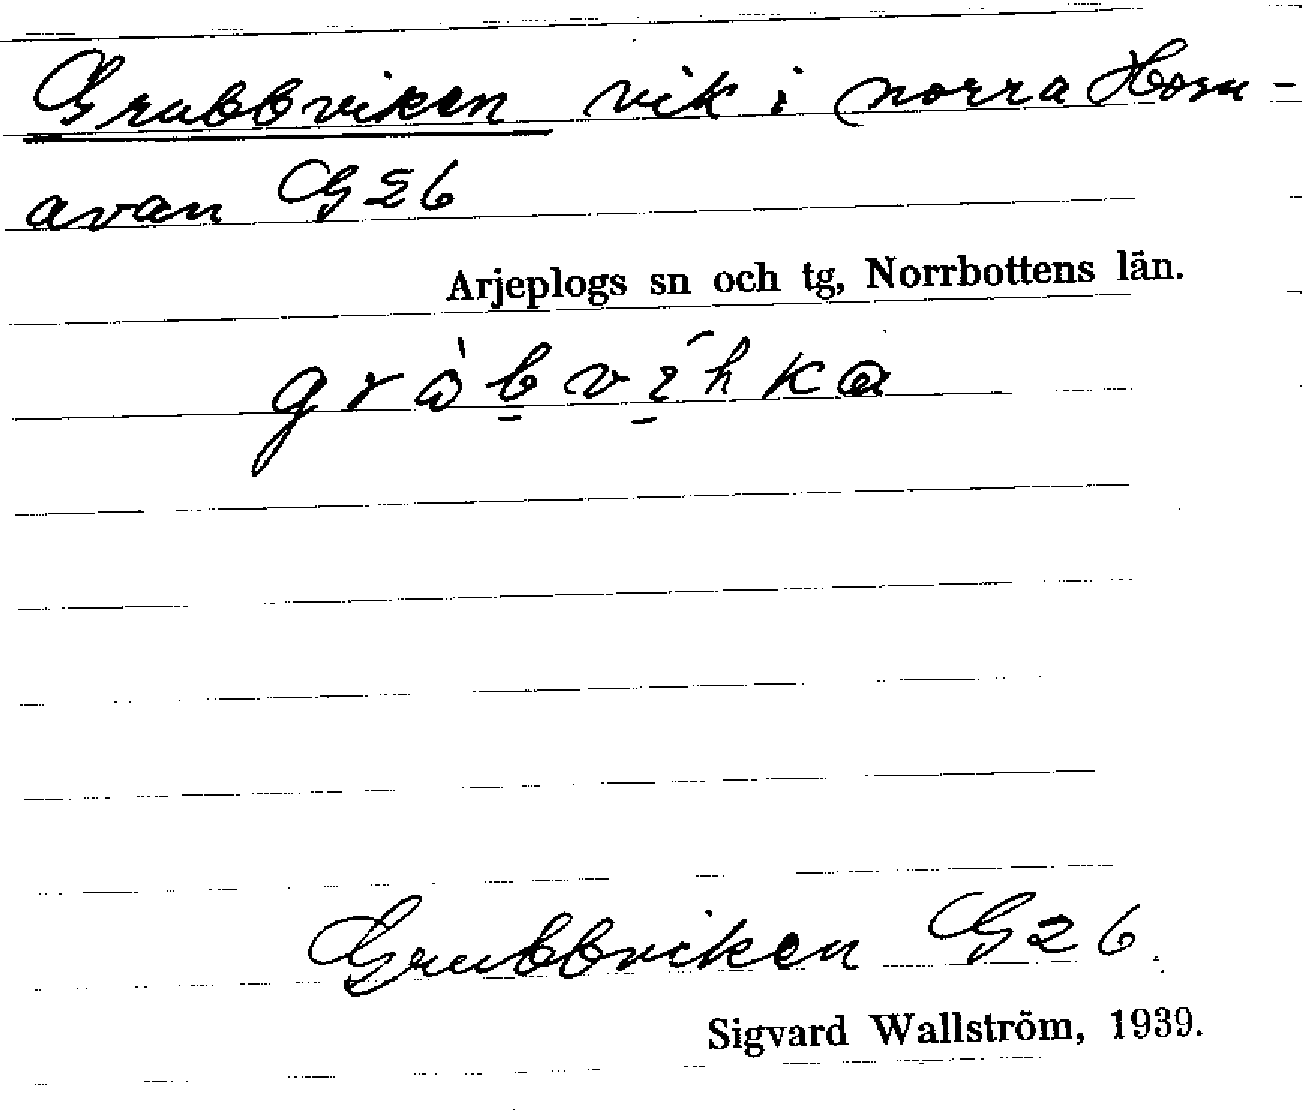 Grubbviken vik i norra Horn-
avan G26
Arjeplogs sn och tg, Norrbottens län.
grὰb̠ví̠hka
Grubbviken G26.
Sigvard Wallström, 1939.